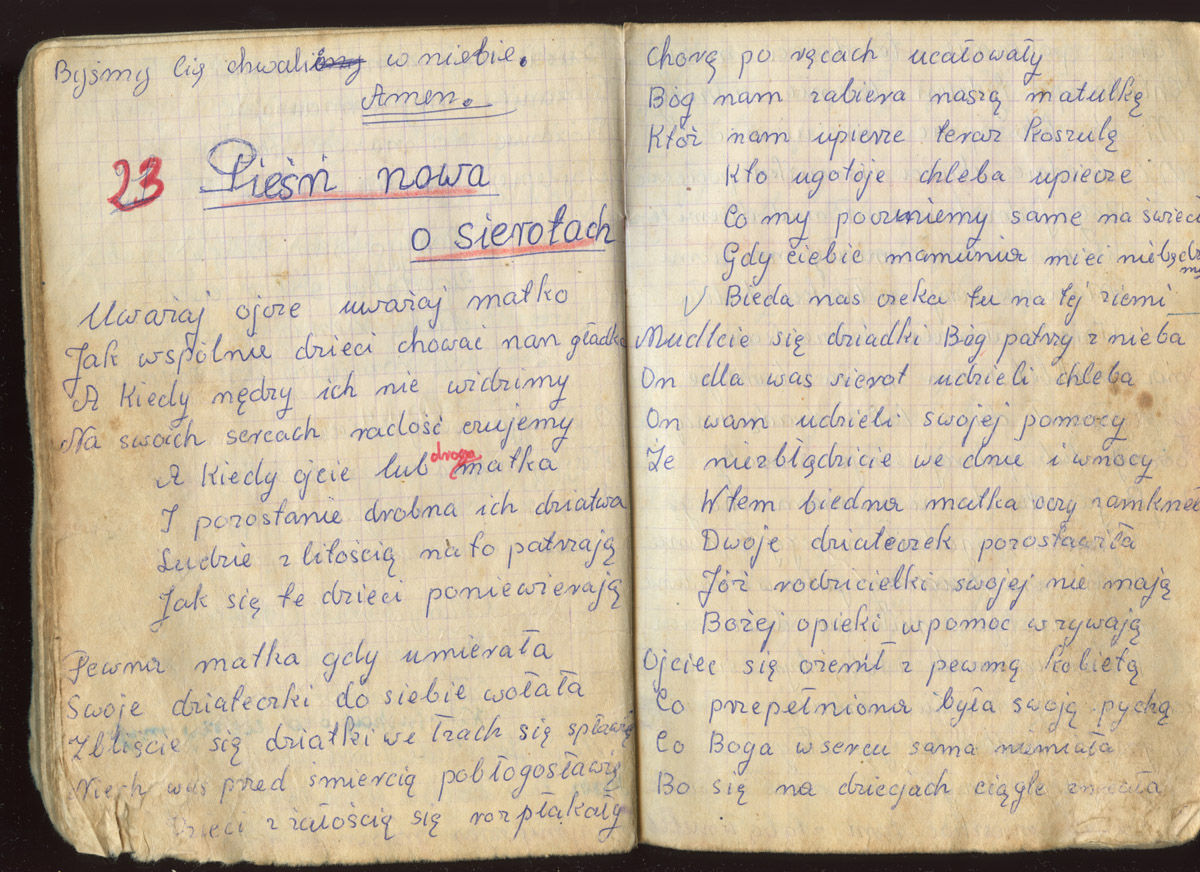 Byśmy Cię chwali w niebie.
Amen.
23 Pieśń nowa
o sierotach
Uważaj ojcze uważaj matko
Jak wspólnie dzieci chować nam gładko
A Kiedy nędzy ich nie widzimy
Na swoich sercach radość czujemy
A Kiedy ojcie lub droga matka
I pozostanie drobna ich dziatwa
Ludzie z litością na to patrzają
Jak się te dzieci poniewierają
Pewna matka gdy umierała
Swoje dziateczki do siebie wołała
Zbliście się dziatki we łzach się spławię
Niech was pred śmiercią pobłogosławię
Dzieci z załością się rozpłakały
Chorą po ręcach ucałowały
Bóg nam zabiera naszą matulkę
Któż nam upierze teraz Koszulę
Kto ugotóje chleba upiecze
Co my poczniemy same na świecie
Gdy ciebie mamunia mieci niebędziemy
√ Bieda nas czeka tu na tej ziemi
Mudlcie się dziadki Bóg patrzy z nieba
On dla was sierot udzieli chleba
On wam udzieli swojej pomocy
Że niezbłądzicie we dnie i wnocy
Wtem biedna matka oczy zamkneła
Dwoje dziateczek pozostawiła
Jóż rodzicielki swojej nie mają
Bożej opieki wpomoc wzywają
Ojciec się ożenił z pewmą kobietą
Co przepełniona była swoją pychą
Co Boga wsercu sama niemiała
Bo się na dziecjach ciągle znęcała